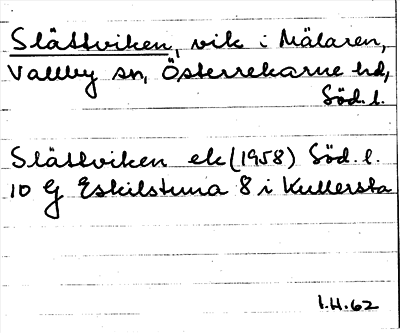 Slättviken, vik i Mälaren,
Vallby sn, Österrekarne hd,
Söd. l.
Slättviken ek (1958) Söd. l.
10 G Eskilstuna 8 i Kullersta
1.H.62